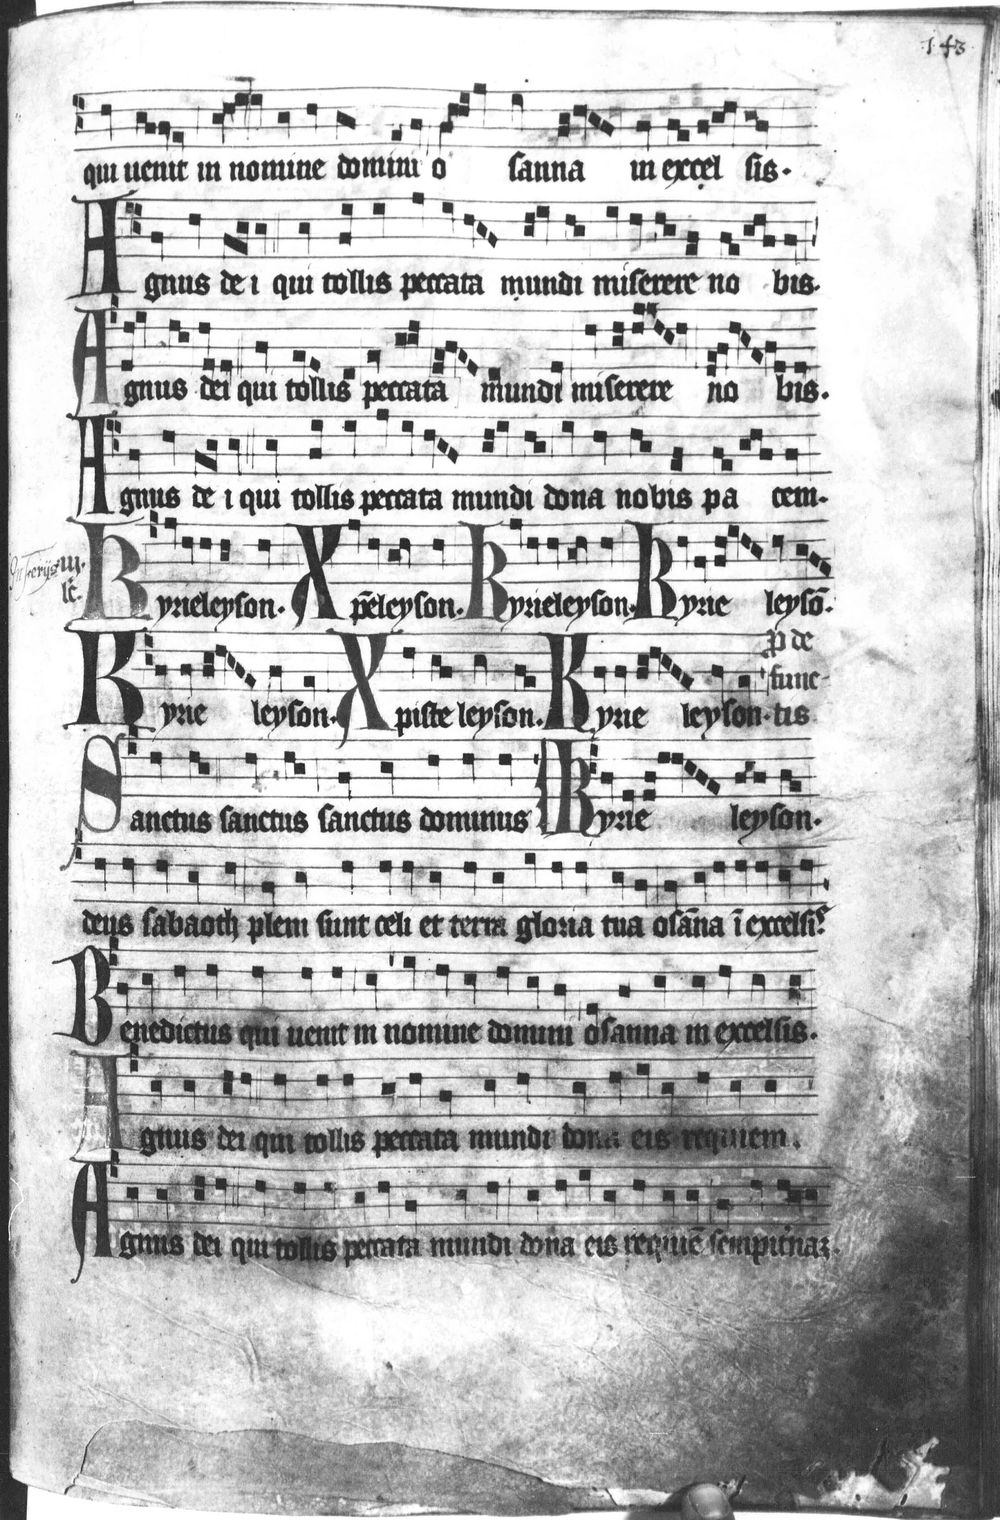 143
qui uenit in nomine domini o sanna in excel sis.
Agnus de i qui tollis peccata mundi miserere no bis.
Agnus dei qui tollis peccata mundi miserere no bis.
Agnus de i qui tollis peccata mundi dona nobis pa cem.
iii. lc̄.
Kyrieleyson. Xp̄eleyson. Kyrieleyson. Kyrie leysō.
Kyrie leyson. Xpiste leyson. Kyrie leyson. ꝓ defunctis
Sanctus sanctus sanctus dominus Kyrie leyson.
deus sabaoth pleni sunt celi et terra gloria tua osāna ī excelsis
Benedictus qui uenit in nomine domini osanna in excelsis.
Agnus dei qui tollis peccata mundi dona eis requiem.
Agnus dei qui tollis peccata mundi dona eis requiē sempit'naꝫ.